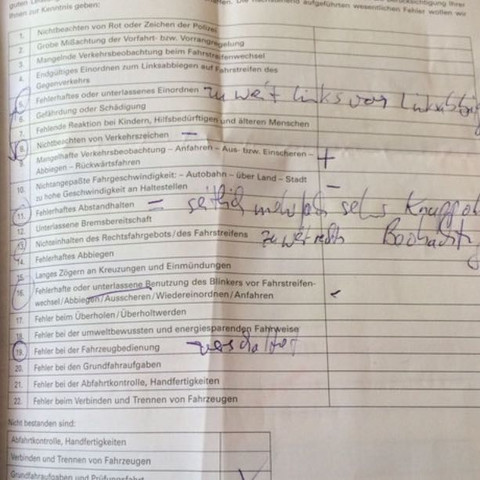 Ihnen zur Kenntnis geben:
aufgeführten wesentlichen Fehler wollen wir
1. Nichtbeachten von Rot oder Zeichen der Polizei
2. Grobe Mißachtung der Vorfahrt- bzw. Vorrangregelung
3. Mangelnde Verkehrsbeobachtung beim Fahrstreifenwechsel
4. Endgültiges Einordnen zum Linksabbiegen auf Fahrstreifen des
Gegenverkehrs
5. Fehlerhaftes oder unterlassenes Einordnen zu weit links vor
6. Gefährdung oder Schädigung
7. Fehlende Reaktion bei Kindern, Hilfsbedürftigen und älteren Menschen
8. Nichtbeachten von Verkehrszeichen –
9. Mangelhafte Verkehrsbeobachtung – Anfahren – Aus- bzw. Einscheren –
Abbiegen – Rückwärtsfahren +
10. Nichtangepaßte Fahrgeschwindigkeit: – Autobahn – über Land – Stadt
zu hohe Geschwindigkeit an Haltestellen –
11. Fehlerhaftes Abstandhalten = seitlich mehrfach sehr knapp
12. Unterlassene Bremsbereitschaft
13. Nichteinhalten des Rechtsfahrgebotes/des Fahrstreifens zu weit rechts Beobachtung
14. Fehlerhaftes Abbiegen
15. Langes Zögern an Kreuzungen und Einmündungen
16. Fehlerhafte oder unterlassene Benutzung des Blinkers vor Fahrstreifen-
wechsel/Abbiegen/Ausscheren/Wiedereinordnen/Anfahren
17. Fehler beim Überholen/Überholtwerden
18. Fehler bei der umweltbewussten und energiesparenden Fahrweise
19. Fehler bei der Fahrzeugbedienung verschaltet
20. Fehler bei den Grundfahraufgaben
21. Fehler bei der Abfahrtkontrolle, Handfertigkeiten
22. Fehler beim Verbinden und Trennen von Fahrzeugen
Nicht bestanden sind:
Abfahrtkontrolle, Handfertigkeiten
Verbinden und Trennen von Fahrzeugen
Grundfahraufgaben und Prüfungsfahrt